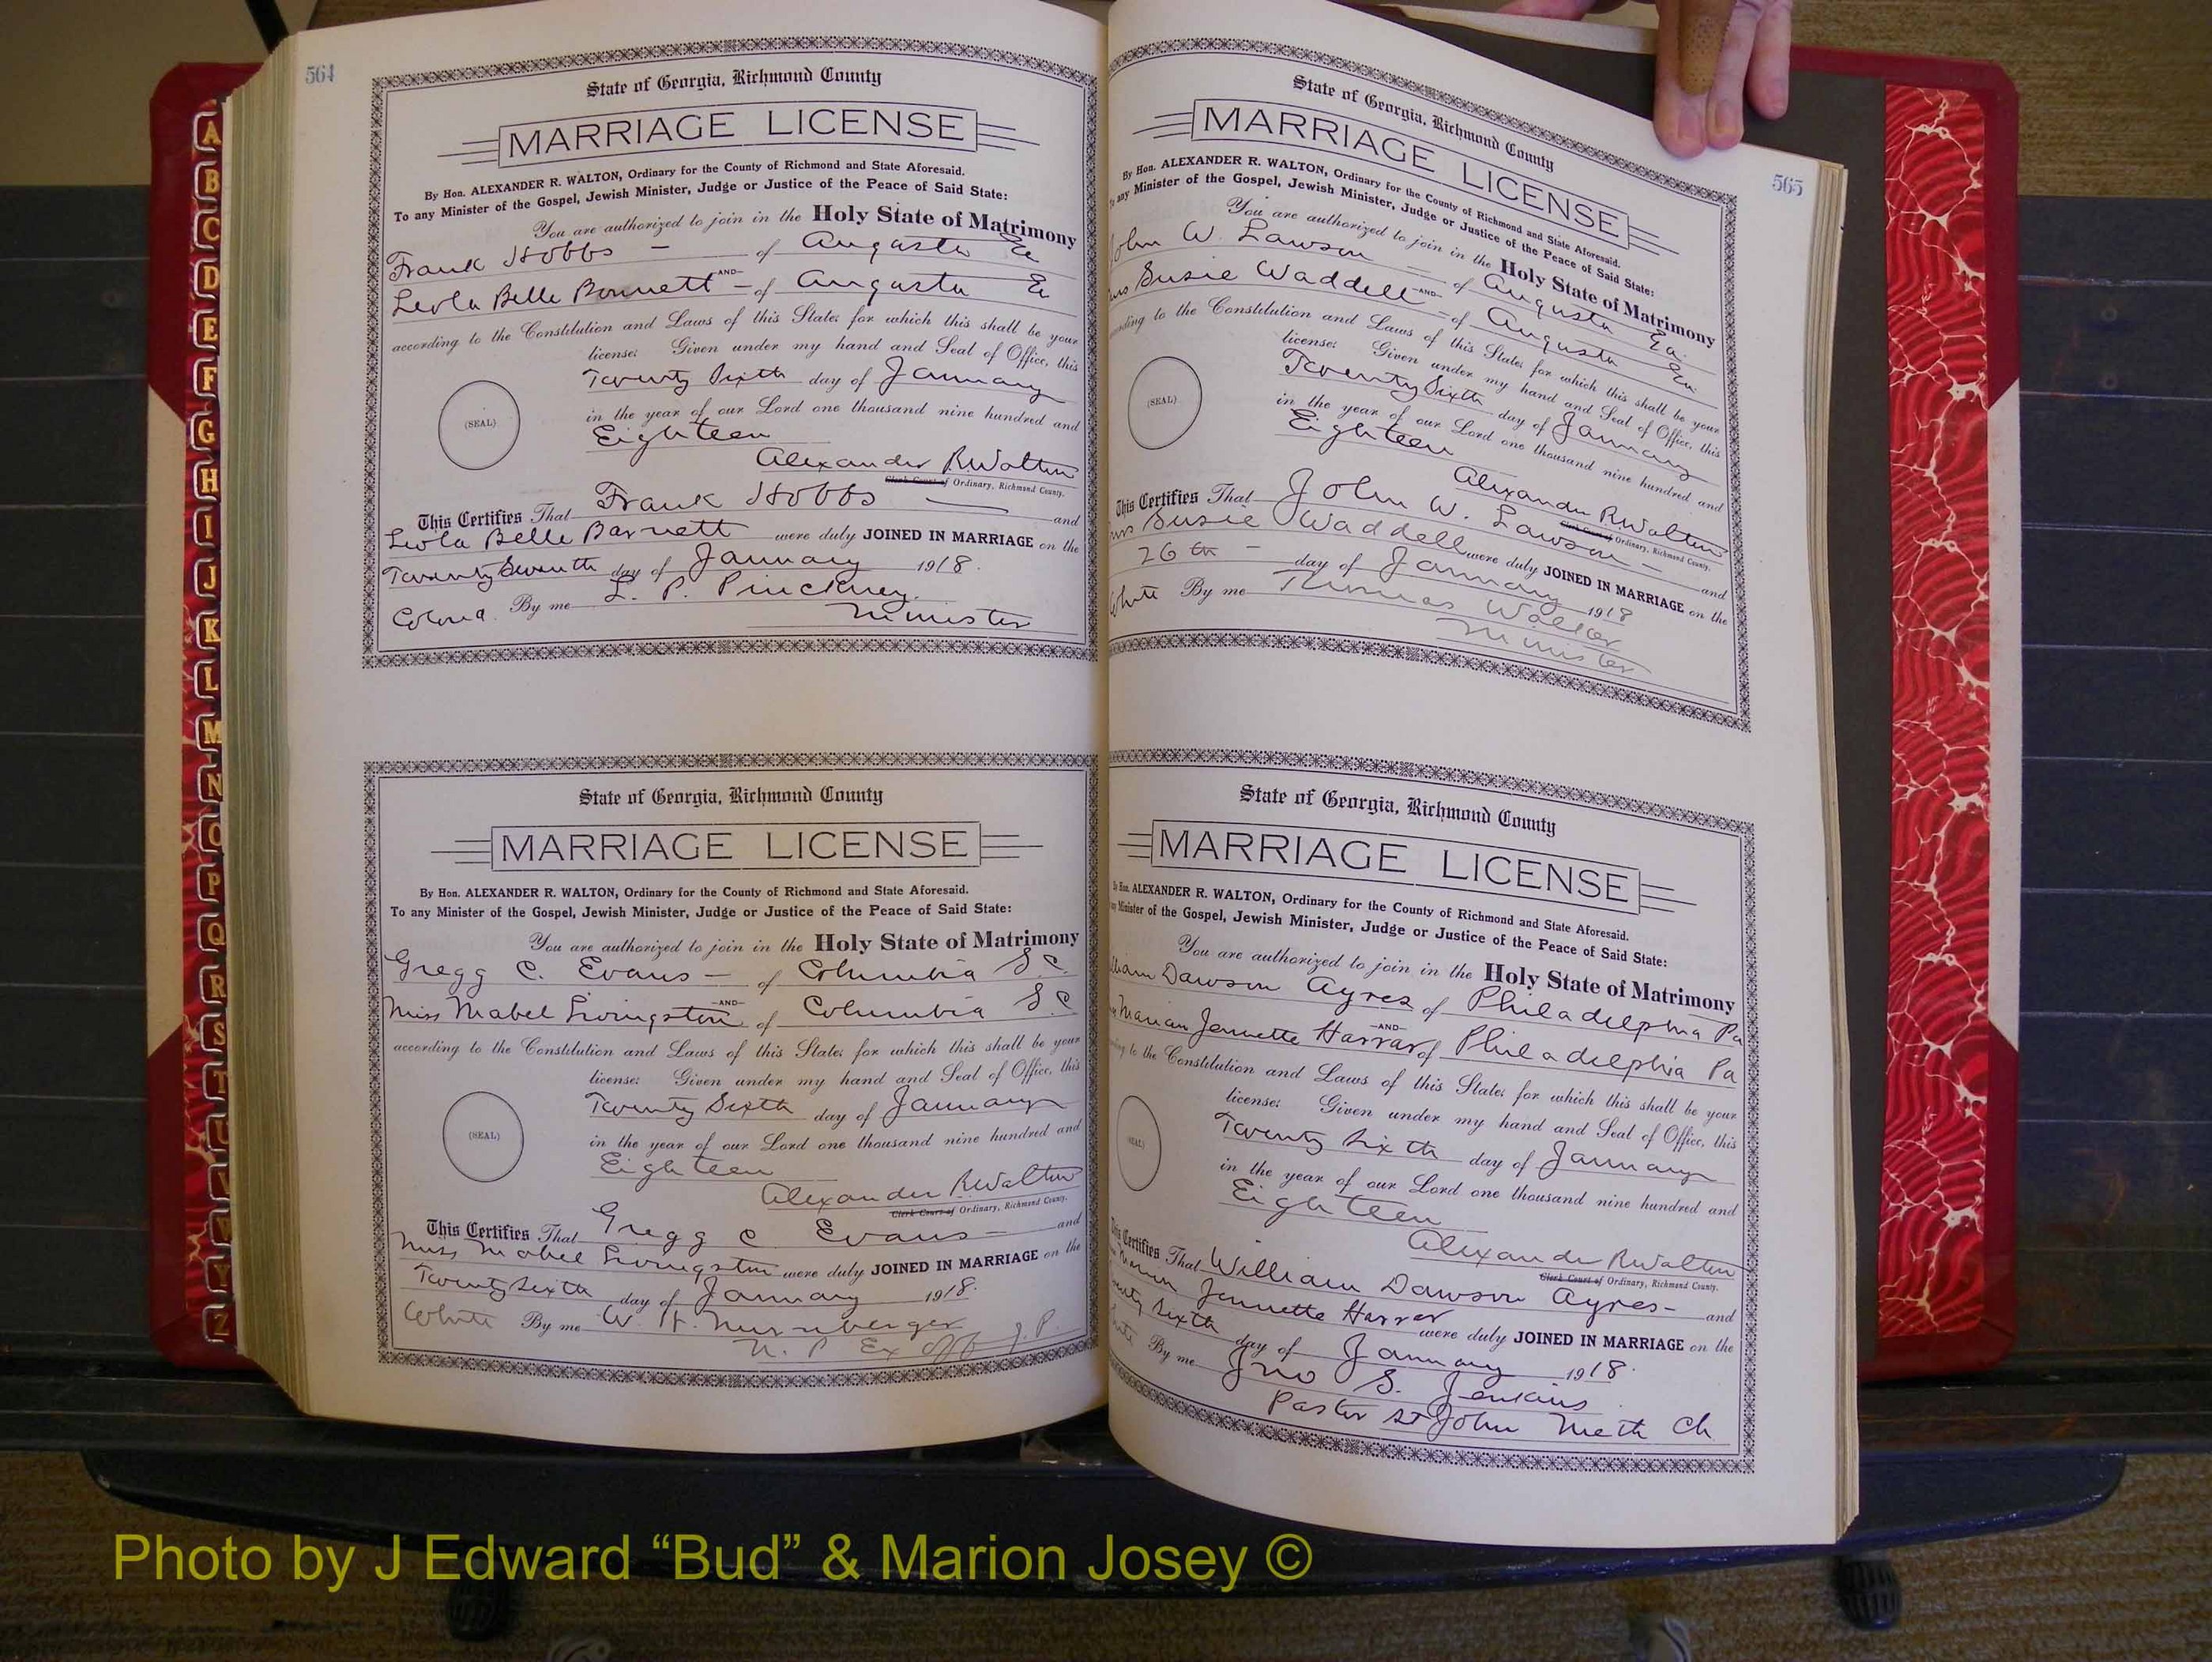 564
State of Georgia, Richmond County
MARRIAGE LICENSE
By Hon. ALEXANDER R. WALTON, Ordinary for the County of Richmond and State Aforesaid.
To any Minister of the Gospel, Jewish Minister, Judge or Justice of the Peace of Said State:
You are authorized to join in the Holy State of Matrimony
Frank Hobbs - of Augusta Ga
AND
Leola Belle Bonnett - of Augusta Ga
according to the Constitution and Laws of this State; for which this shall be your
license: Given under my hand and Seal of Office, this
Twenty Sixth day of January
in the year of our Lord one thousand nine hundred and
(SEAL)
Eighteen
Alexander R Walton
Clerk Court of Ordinary, Richmond County.
This Certifies That Frank Hobbs and
Leola Belle Barnett were duly JOINED IN MARRIAGE on the
Twenty Seventh day of January 1918.
Colored. By me L. P. Pinckney.
Minister
State of Georgia, Richmond County
MARRIAGE LICENSE
By Hon. ALEXANDER R. WALTON, Ordinary for the County of Richmond and State Aforesaid.
To any Minister of the Gospel, Jewish Minister, Judge or Justice of the Peace of Said State:
You are authorized to join in the Holy State of Matrimony
Gregg C. Evans - of Columbia S.C.
AND
Miss Mabel Livingston of Columbia S.C
according to the Constitution and Laws of this State; for which this shall be your
license: Given under my hand and Seal of Office, this
Twenty Sixth day of January
(SEAL)
in the year of our Lord one thousand nine hundred and
Eighteen
Alexander R Walton
Clerk Court of Ordinary, Richmond County.
This Certifies That Gregg C Evans - and
Miss Mabel Livingston were duly JOINED IN MARRIAGE on the
Twenty Sixth day of January 1918.
White By me W. H. Nurnberger
N. P Ex Off J. P.
565
State of Georgia, Richmond County
MARRIAGE LICENSE
By Hon. ALEXANDER R. WALTON, Ordinary for the County of Richmond and State Aforesaid.
any Minister of the Gospel, Jewish Minister, Judge or Justice of the Peace of Said State:
You are authorized to join in the Holy State of Matrimony
John W. Lawson - of Augusta Ga.
AND
Susie Waddell - of Augusta Ga.
to the Constitution and Laws of this State; for which this shall be your
license: Given under my hand and Seal of Office, this
Twenty Sixth day of January
(SEAL)
in the year of our Lord one thousand nine hundred and
Eighteen
Alexander R Walton
Clerk Court of Ordinary, Richmond County.
This Certifies That John W. Lawson - and
Susie Waddell were duly JOINED IN MARRIAGE on the
26th - day of January 1918
White By me Thomas Walker
Minister
State of Georgia, Richmond County
MARRIAGE LICENSE
By Hon. ALEXANDER R. WALTON, Ordinary for the County of Richmond and State Aforesaid.
any Minister of the Gospel, Jewish Minister, Judge or Justice of the Peace of Said State:
You are authorized to join in the Holy State of Matrimony
Dawson Ayres of Philadelphia Pa
AND
Marian Jennette Harrar of Philadelphia Pa
to the Constitution and Laws of this State; for which this shall be your
license: Given under my hand and Seal of Office, this
Twenty Sixth day of January
(SEAL)
in the year of our Lord one thousand nine hundred and
Eighteen
Alexander R Walton
Clerk Court of Ordinary, Richmond County.
Certifies That William Dawson Ayres - and
Jennette Harrar were duly JOINED IN MARRIAGE on the
Sixth day of January 1918.
By me Jno S. Jenkins
Pastor St John Meth Ch
A
B
C
D
E
F
G
H
I
J
K
L
M
N
O
P
Q
R
S
T
U
V
W
Y
Z
Photo by J Edward “Bud” & Marion Josey ©